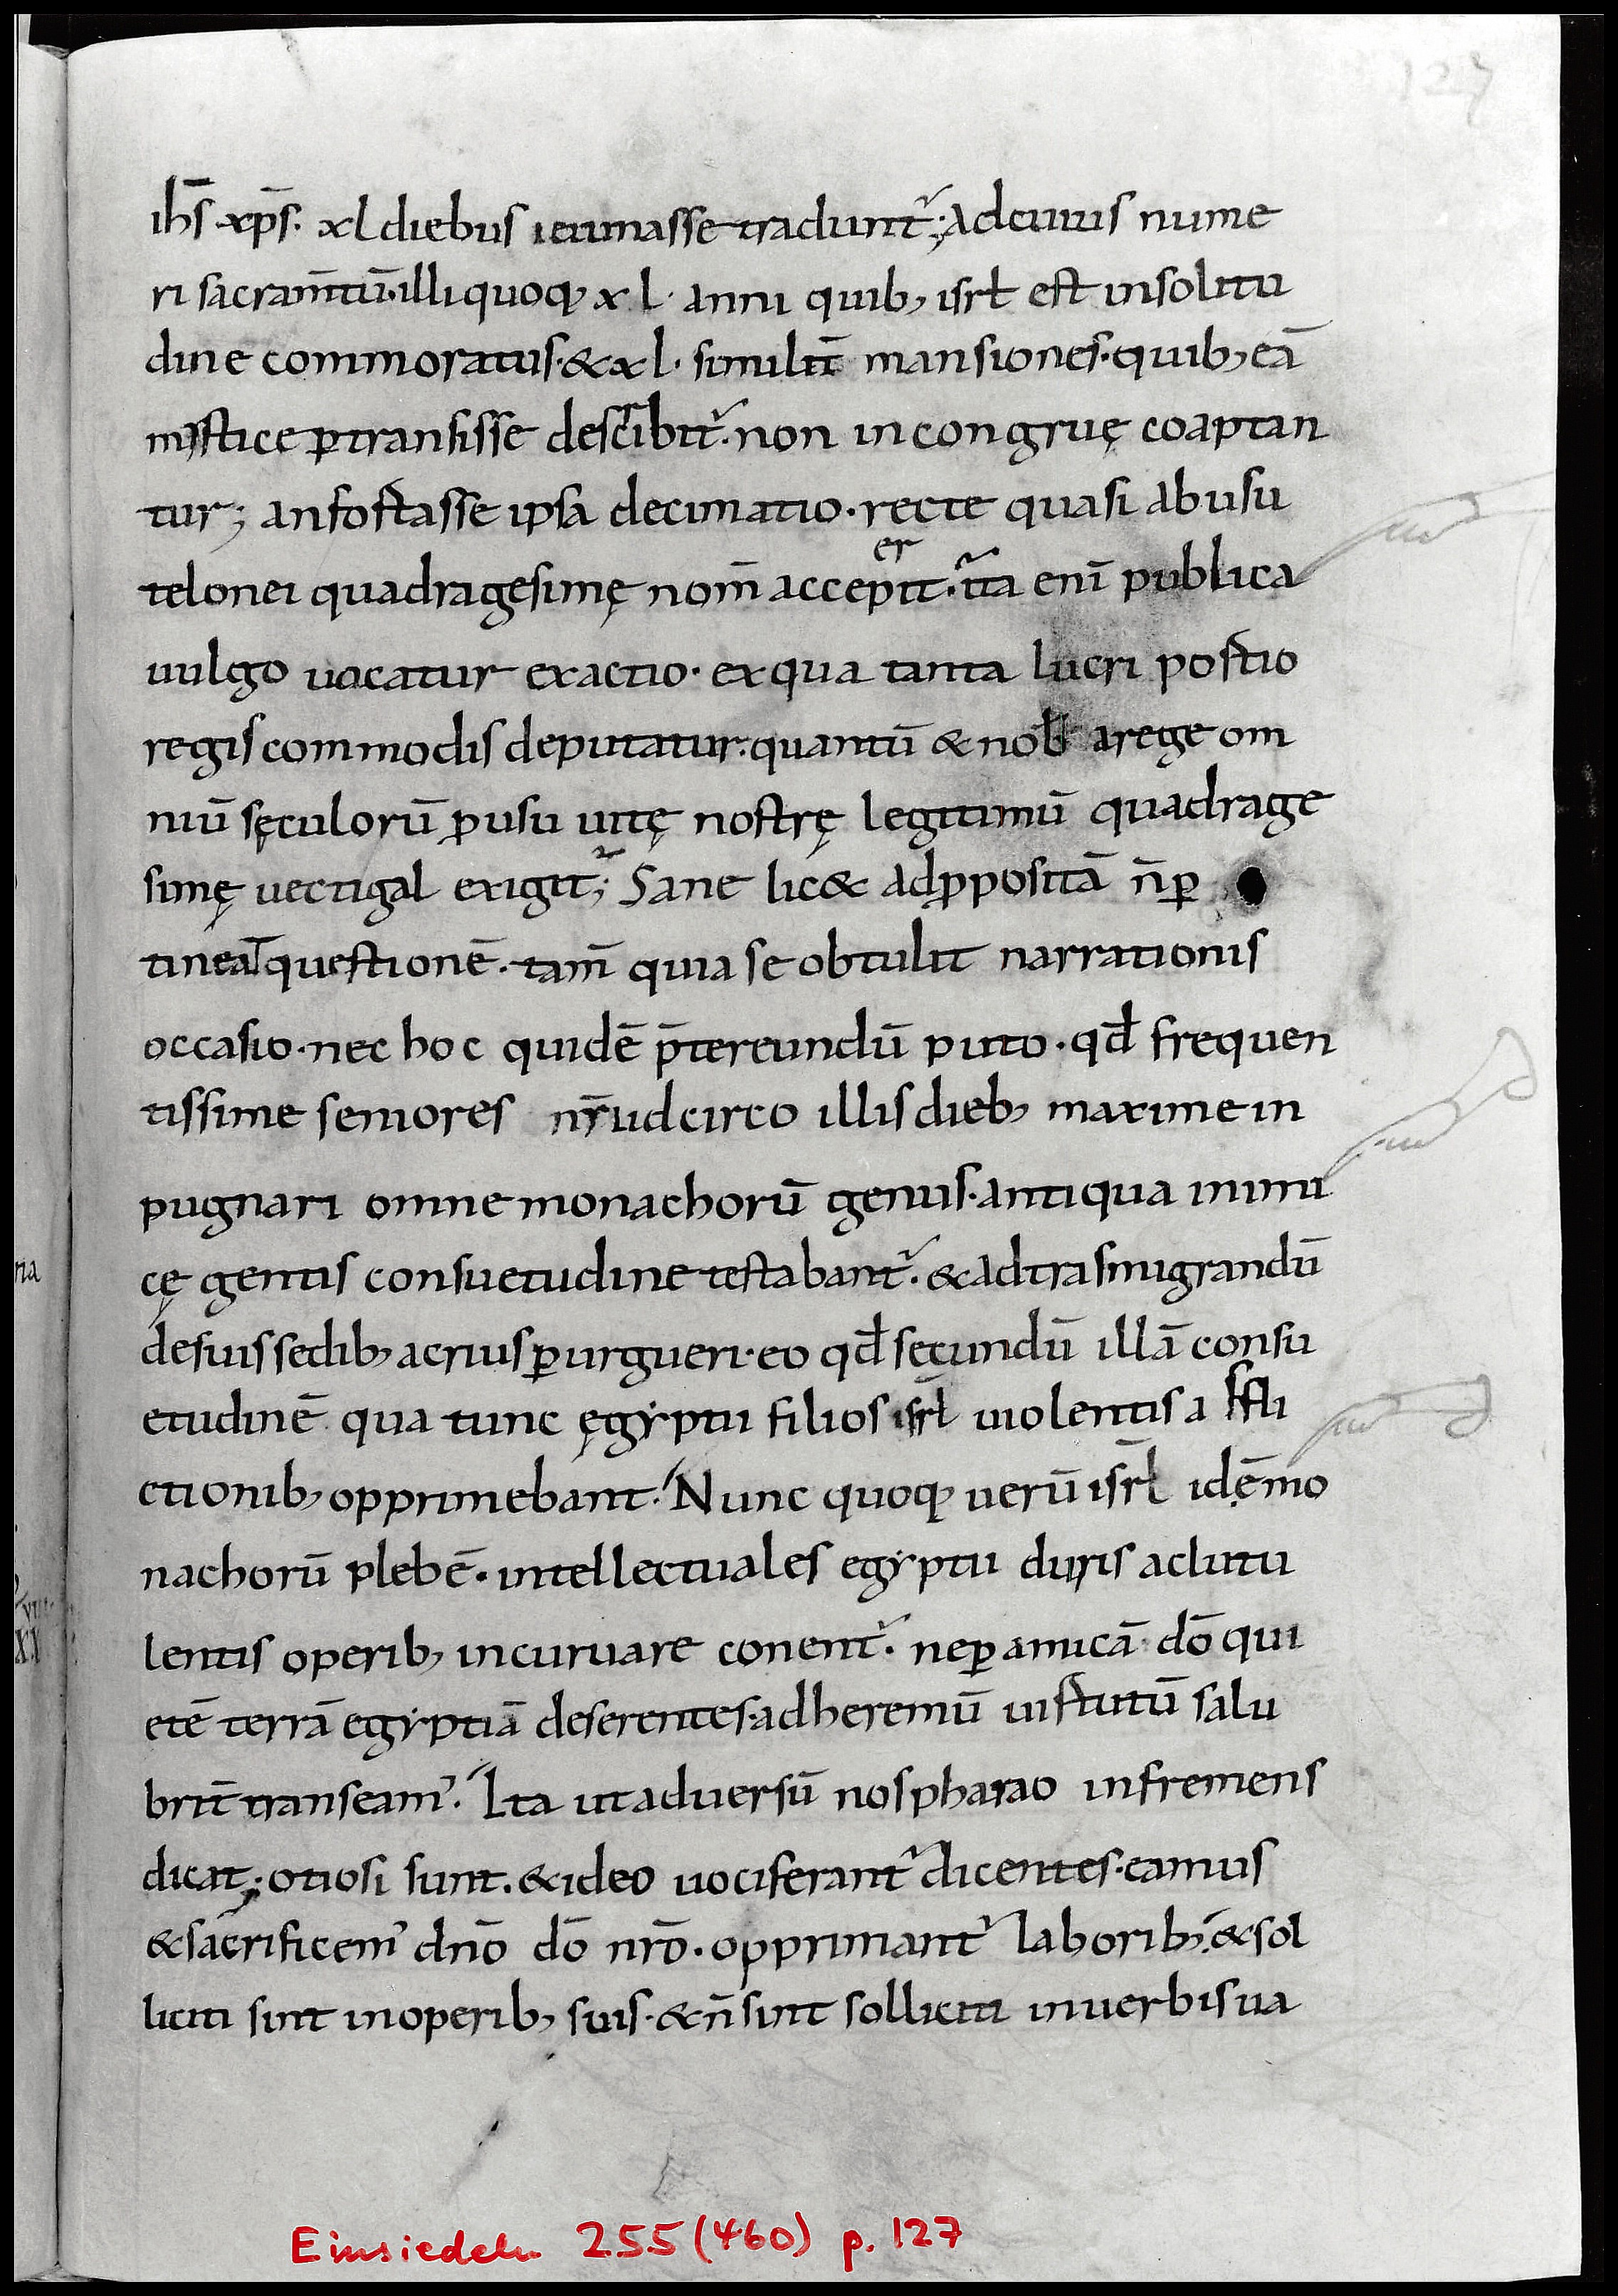 127
ihs̄ xp̄s. xl diebus ieiunasse tradunt᷑; Adcuius nume
ri sacram̄tū. illi quoq; xl. anni quib; isrł est insolitu
dine commoratus. & xl. similit̄ mansiones. quib; eā
mistice ꝑtransisse describit᷑. non incongruę coaptan
tur; anfortasse ipsa decimatio. recte quasi abusu
telonei quadragesimę nom̄ acceperit. ita enī publica
uulgo uocatur exactio. exqua tanta lucri portio
regis commodis deputatur. quantū & nob̄ arege om
niū sęculorū ꝑusu uitę nostrę legitimū quadrage
simę uectigal exigit᷑; Sane lic& adꝓpositā n̄ ꝑ
tineat questionē. tam̄ quia se obtulit narrationis
occasio. nec hoc quidē p̄tereundū puto. qđ frequen
tissime seniores nr̄i idcirco illis dieb; maxime in
pugnari omne monachorū genus. antiqua inimi
cę gentis consuetudine testabant᷑. & adtrasmigrandū
desuis sedib; acrius ꝑurgueri. eo qđ secundū illā consu
etudinē qua tunc ęgyptii filios isrł uiolentis a ffli
ctionib; opprimebant. Nunc quoq; uerū isrł idē mo
nachorū plebē. intellectuales egyptii duris aclutu
lentis operib; incuruare conent᷑. neꝑ amicā dō qui
etē terrā egyptiā deserentes. adheremū uirtutū salu
brit̄ transeam᷒. Ita ut aduersū nos pharao infremens
dicat; otiosi sunt. & ideo uociferant᷑ dicentes. eamus
& sacrificem᷒ dn̄o dō nr̄o. opprimant᷑ laborib; & sol
liciti sint inoperib; suis. & n̄ sint solliciti inuerbis ua
Einsiedeln 255 (460) p. 127